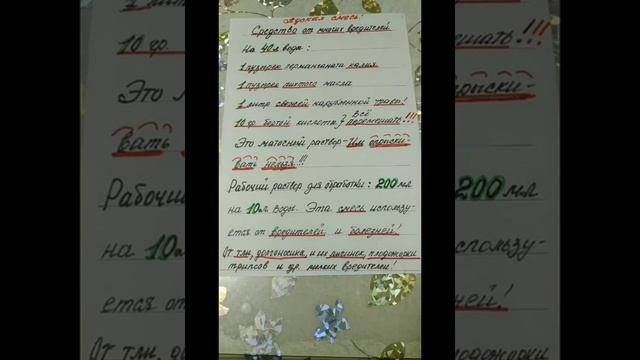 Адская смесь!
Средство от многих вредителей
На 40л воды:
1 пузырек перманганата калия
1 пузырек пихтого масла
1 литр свежей нарубленной травы!
10 гр. борной кислоты } Всё перемешать!!!
Это маточный раствор - Им опрыски-
вать нельзя!!!
Рабочий раствор для обработки: 200мл
на 10л воды. Эта смесь использу-
ется от вредителей и болезней!
От тли, долгоносика, и их личинок, плодожорки
трипсов и др. мелких вредителей!